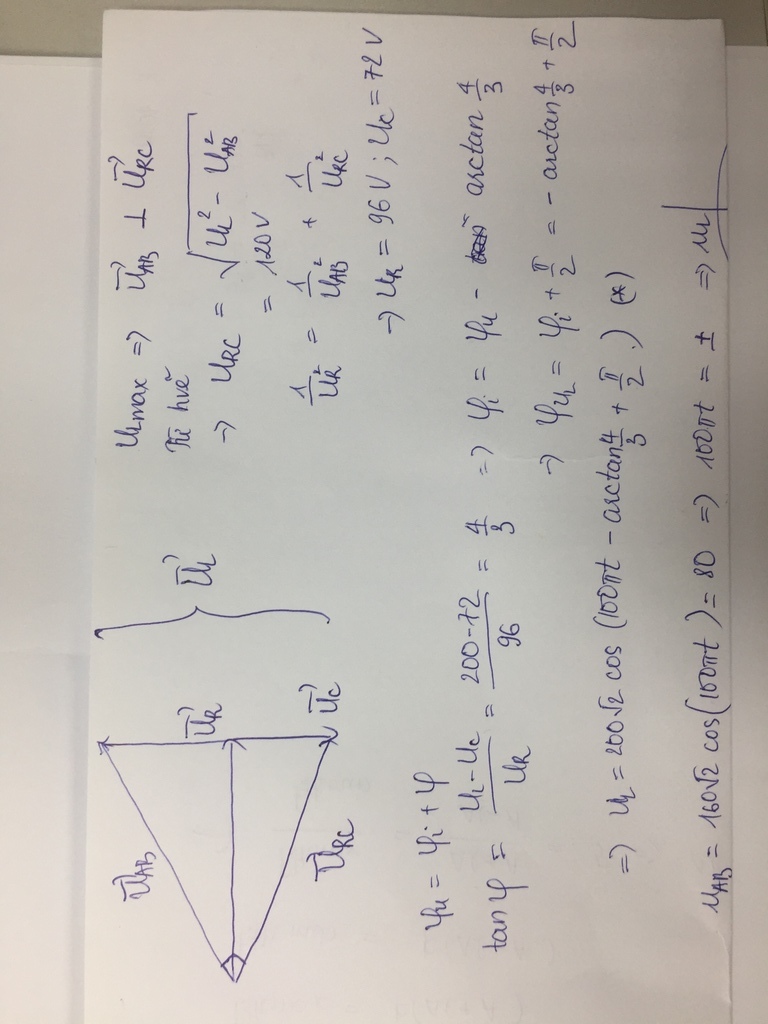 U⃗AB
U⃗R
U⃗L
U⃗RC
U⃗C
ULmax => U⃗AB ⊥ U⃗RC
Từ hvẽ
→ URC = √(UL² - UAB²)
= 120V
1/UR² = 1/UAB² + 1/URC²
→ UR = 96V ; UC = 72V
φu = φi + φ
tanφ = (UL - UC)/UR = (200-72)/96 = 4/3 => φi = φu - arctan 4/3
→ φuL = φi + π/2 = - arctan 4/3 + π/2
=> uL = 200√2 cos (100πt - arctan 4/3 + π/2 .) (*)
uAB = 160√2 cos(100πt) = 80 => 100πt = ± => uL